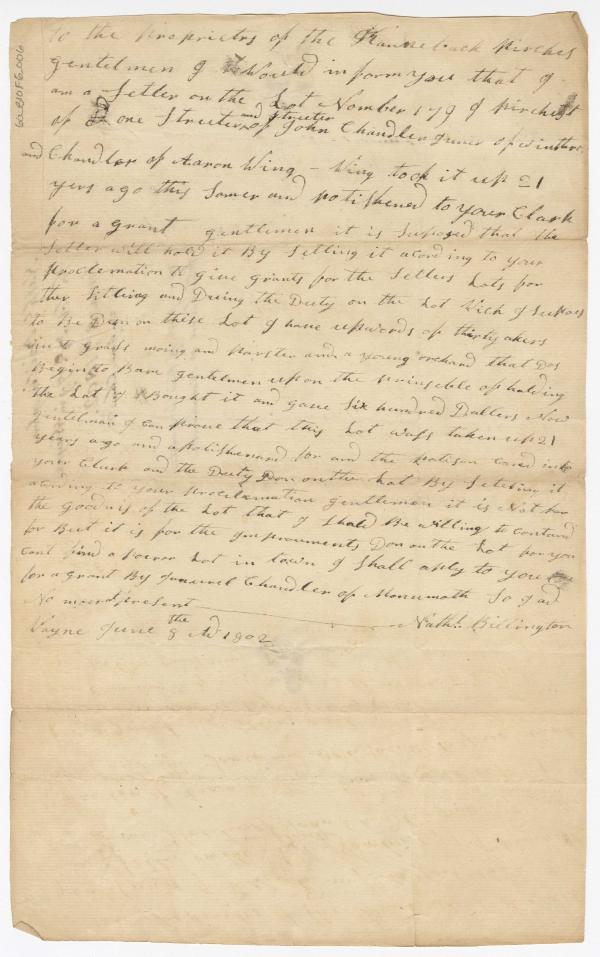 To the Proprietrs of the Kanneback Pirches
gentelmen I Would inform you that I
am a Setler on the Lot Nomber 179 I pirchest
of one Streeter and Streeter of John Chandler Juner of Winthrop
and Chandler of Aaron Wing – Wing took it up 21
yers ago this Somer and potishened to your Clark
for a grant gentlemen it is Suposed that the
Setler will hold it By Setling it acording to your
Proclemation to give grants for the Setlers Lots for
ther Setling and Duing the Duty on the Lot Wich I Supos
to Be Dun on these Lot I have upwords of thirty akers
in to grass moing and parster and a young orchand that Dos
Begin to Bare gentelmen upon the prinseble of holding
the Lot I Bought it and gave Six hundred Dallers Now
gentelman I can prove that this Lot wass taken up 21
years ago and apotishenand for and the patison cared into
your Clark and the Duty Don on the Lot By Seteling it
acording to your Proclemation gentlemen it is Not for
the goodnis of the Lot that I Shald Be willing to contand
for But it is for the improvments Don on the Lot for you
cant find a porer Lot in town I Shall aply to you
for a grant By Chandler of Monumoth So I ad
No more at present Nathl. Billington
Wayne June the 8 AD 1802
60.810F6.006